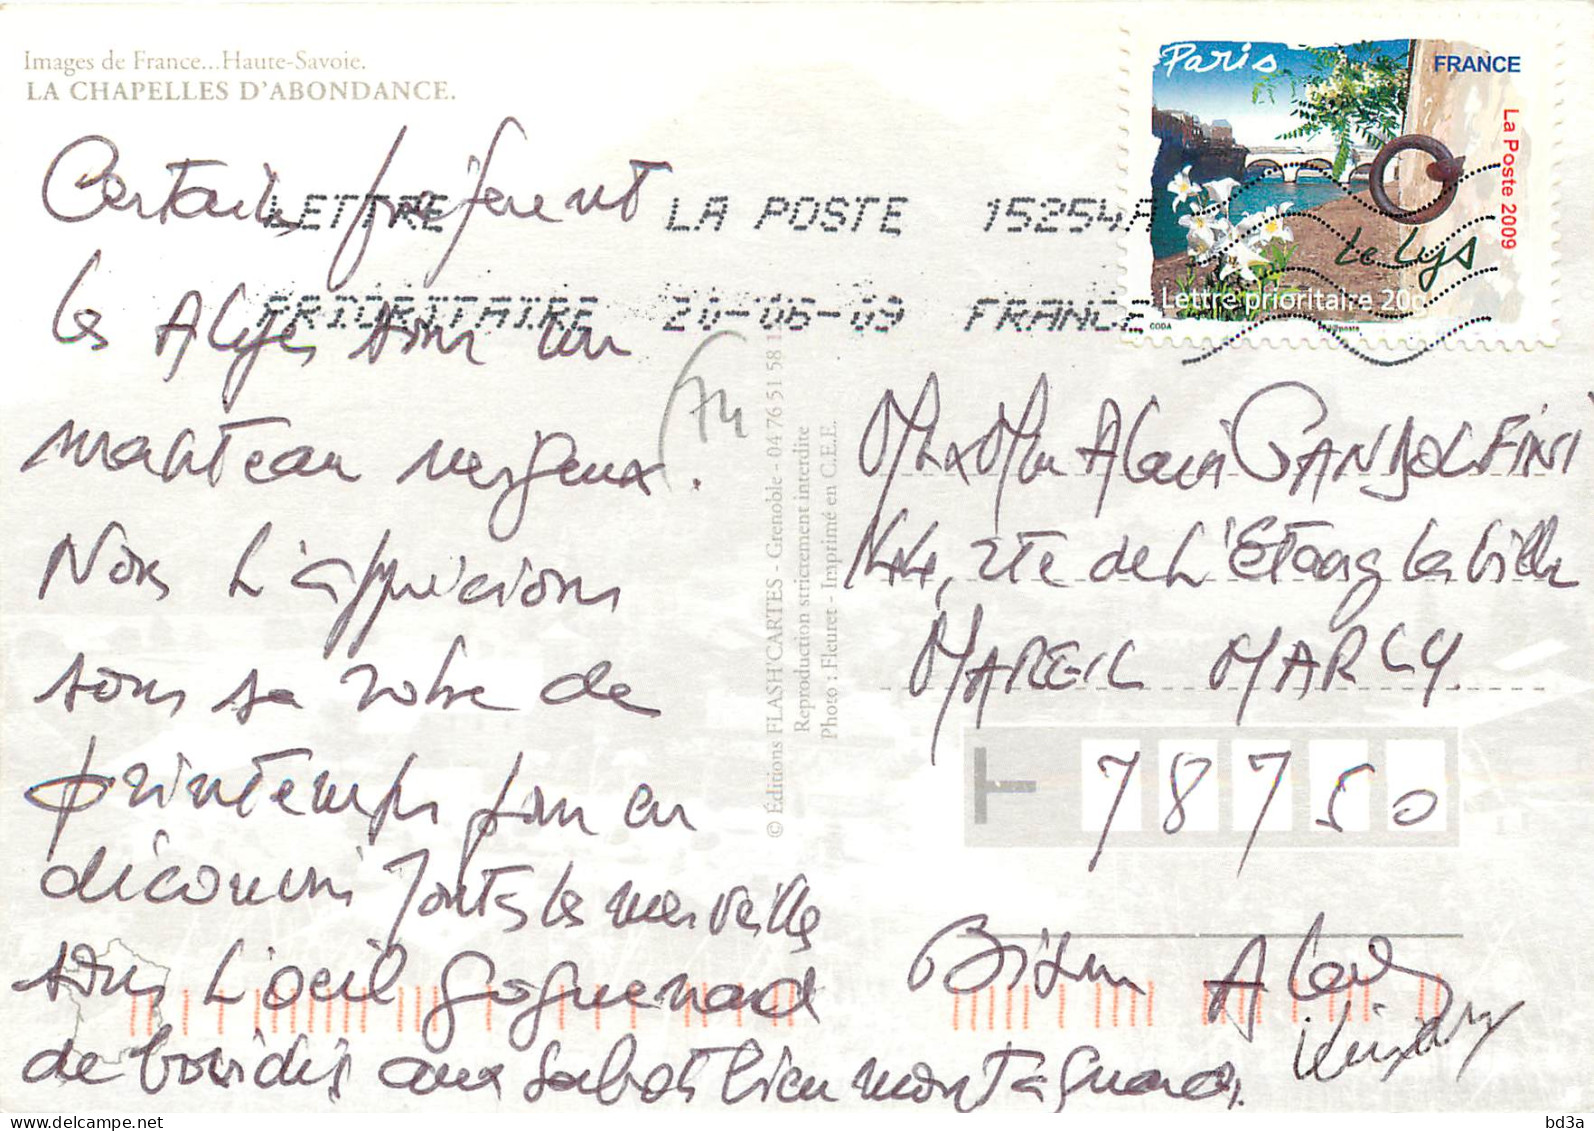 Images de France...Haute-Savoie.
LA CHAPELLES D'ABONDANCE.
Paris
FRANCE
La Poste 2009
Le Lys
Lettre prioritaire 20g
CODA
LETTRE LA POSTE 15254A
PRIORITAIRE 20-06-09 FRANCE
Certains préfèrent
les Alpes sous un
manteau neigeux.
Nous l'apprécions
sous sa robe de
printemps pour en
découvrir toutes les merveilles
sous l'oeil goguenard
de bovidés aux sabots bien montagnards.
74
© Éditions FLASH'CARTES - Grenoble - 04 76 51 58 1
Reproduction strictement interdite
Photo : Fleuret - Imprimé en C.E.E.
Alain GANDOLFINI
44, rte de L'Etang la ville
MAREIL MARLY.
78750
bd3a